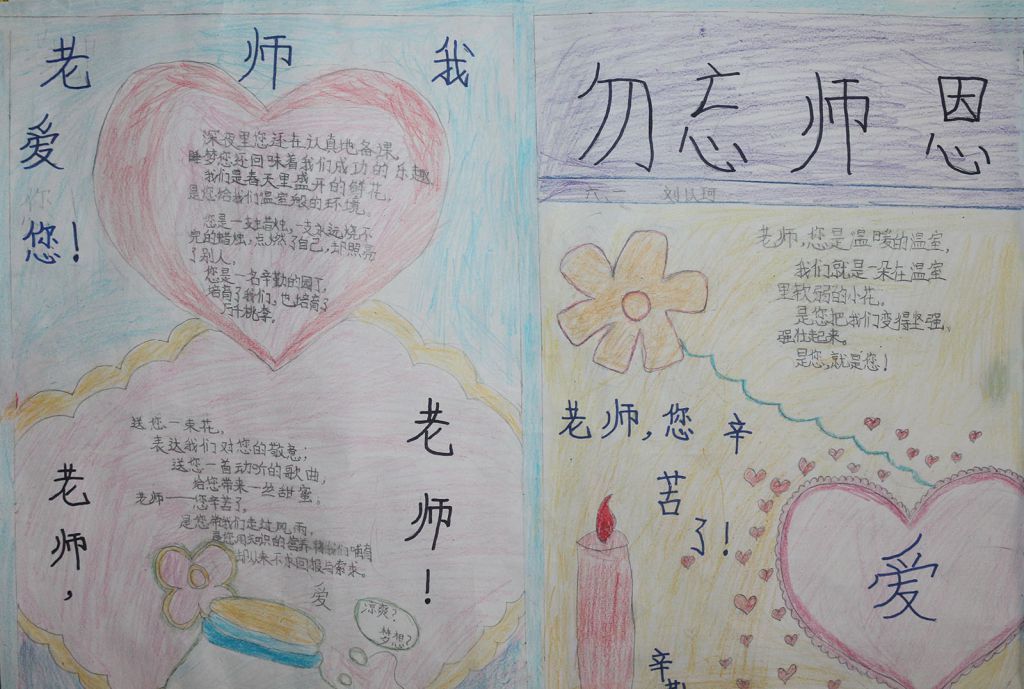 老师我
爱
您！
深夜里您还在认真地备课，
睡梦您还回味着我们成功的乐趣，
我们是春天里盛开的鲜花，
是您给我们温室般的环境。
您是一支蜡烛，一支永远烧不
完的蜡烛，点燃了自己，却照亮
了别人，
您是一名辛勤的园丁，
培育了我们，也培育了
万千桃李。
送您一束花，
表达我们对您的敬意；
送您一首动听的歌曲，
给您带来一丝甜蜜。
老师——您辛苦了，
是您带我们走过风雨，
是您用知识的营养将我们哺育
却从来不求回报与索求。
爱
老师，
老师！
凉爽？
梦想？
勿忘师恩
六、二
老师，您是温暖的温室，
我们就是一朵在温室
里软弱的小花。
是您把我们变得坚强、
强壮起来。
是您，就是您！
老师，您辛
苦
了！
爱
辛
勤